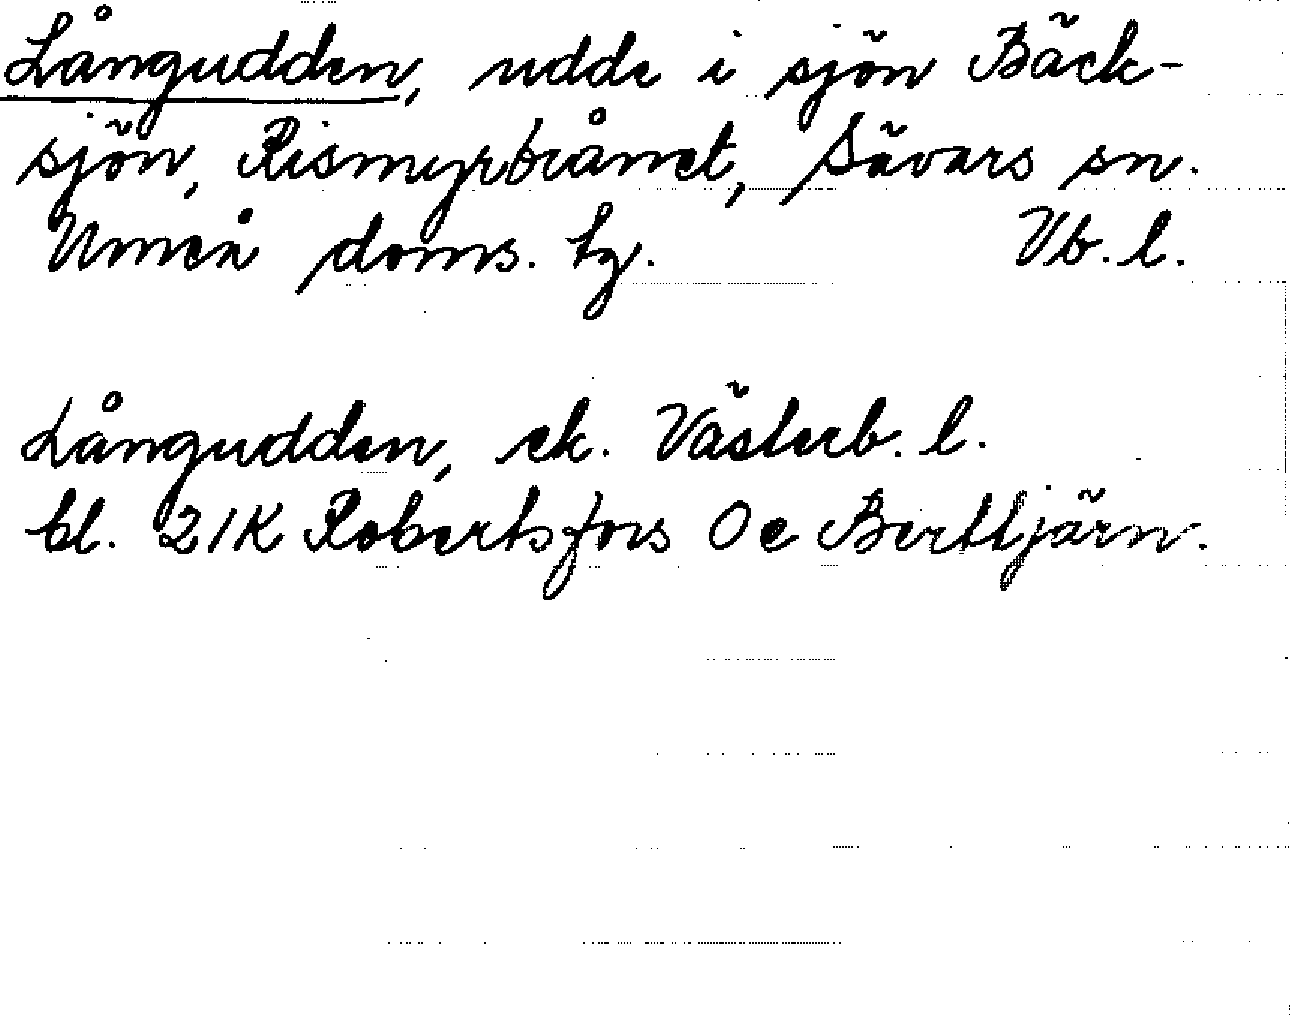 Långudden, udde i sjön Bäck-
sjön, Rismyrbrånet, Sävars sn.
Umeå doms. tg. Vb. l.
Långudden, ek. Västerb. l.
bl. 21K Robertsfors 0e Berttjärn.